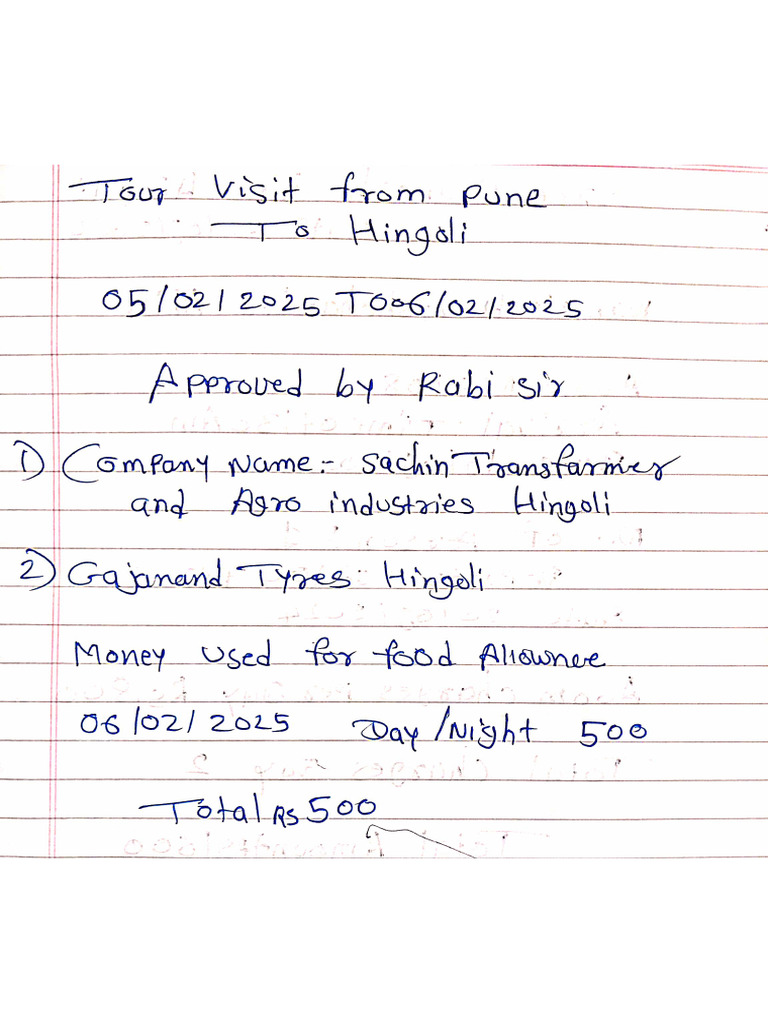 Tour Visit from Pune
To Hingoli
05/02/2025 TO 06/02/2025
Approved by Rabi Sir
1) Company Name:- Sachin Transfarmer
and Agro industries Hingoli
2) Gajanand Tyres Hingoli
Money used for food Allownee
06/02/2025 Day/Night 500
Total Rs 500